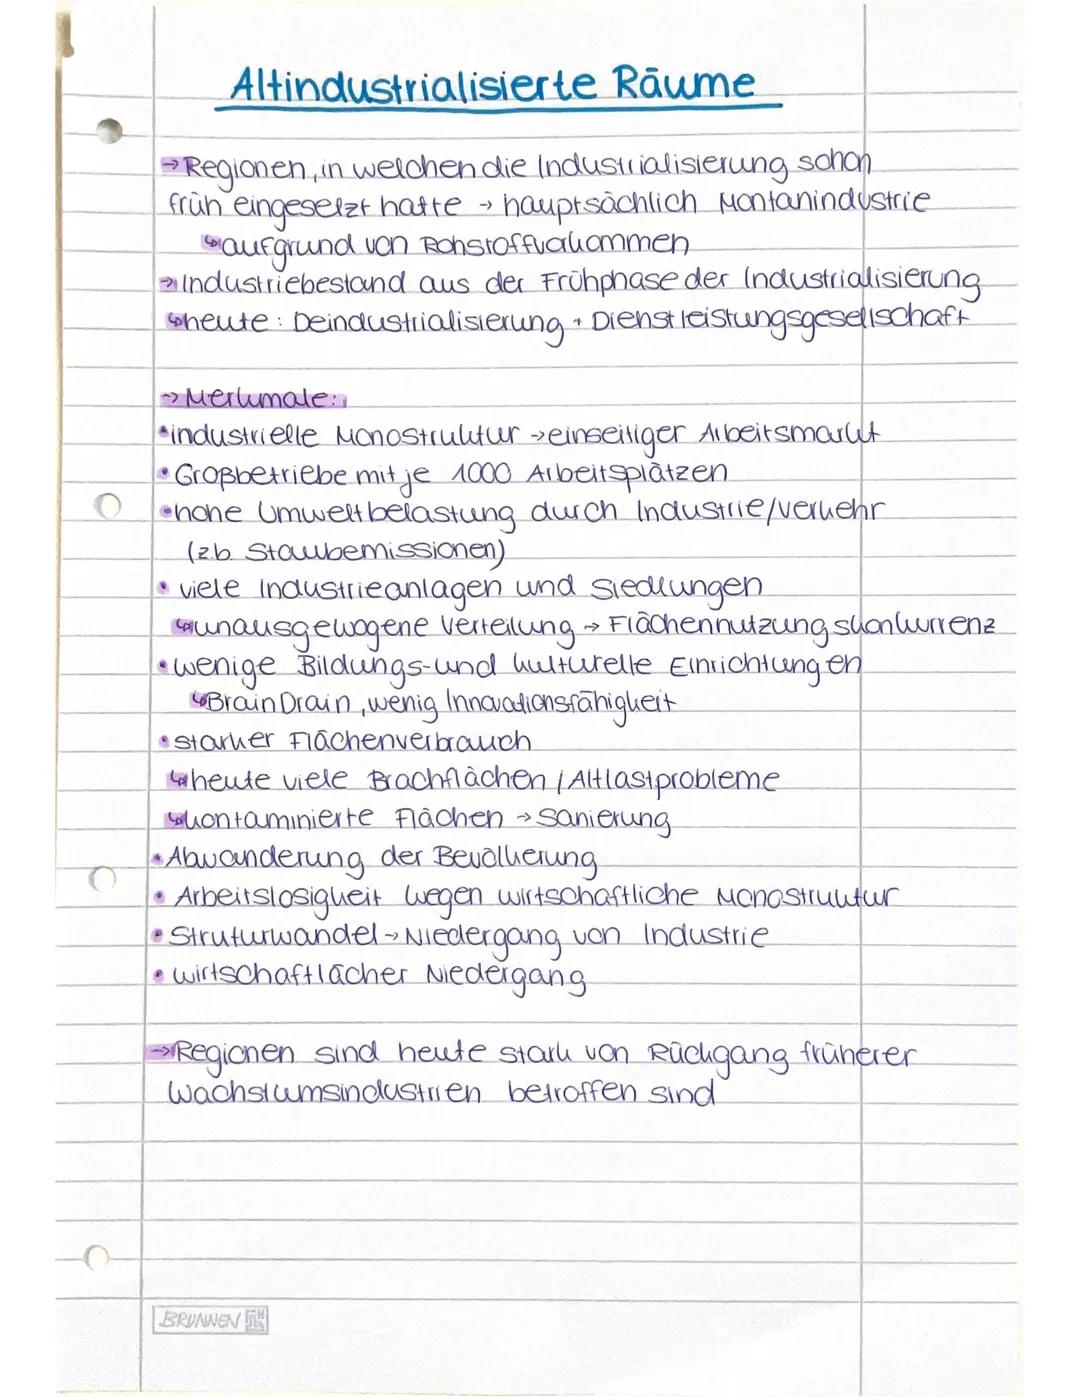 Altindustrialisierte Räume
→ Regionen, in welchen die Industrialisierung schon
früh eingesetzt hatte → hauptsächlich Montanindustrie
↳ aufgrund von Rohstoffvorkommen
→ Industriebestand aus der Frühphase der Industrialisierung
↳ heute: Deindustrialisierung + Dienstleistungsgesellschaft
→ Merkmale:
• industrielle Monostruktur → einseitiger Arbeitsmarkt
• Großbetriebe mit je 1000 Arbeitsplätzen
• hohe Umweltbelastung durch Industrie/Verkehr
(z.b. Staubemissionen)
• viele Industrieanlagen und Siedlungen
↳ unausgewogene Verteilung → Flächennutzungskonkurrenz
• wenige Bildungs- und kulturelle Einrichtungen
↳ Brain Drain, wenig Innovationsfähigkeit
• starker Flächenverbrauch
↳ heute viele Brachflächen / Altlastprobleme
↳ kontaminierte Flächen → Sanierung
• Abwanderung der Bevölkerung
• Arbeitslosigkeit wegen wirtschaftliche Monostruktur
• Struturwandel → Niedergang von Industrie
• wirtschaftlicher Niedergang
→ Regionen sind heute stark von Rückgang früherer
Wachstumsindustrien betroffen sind
BRUNNEN